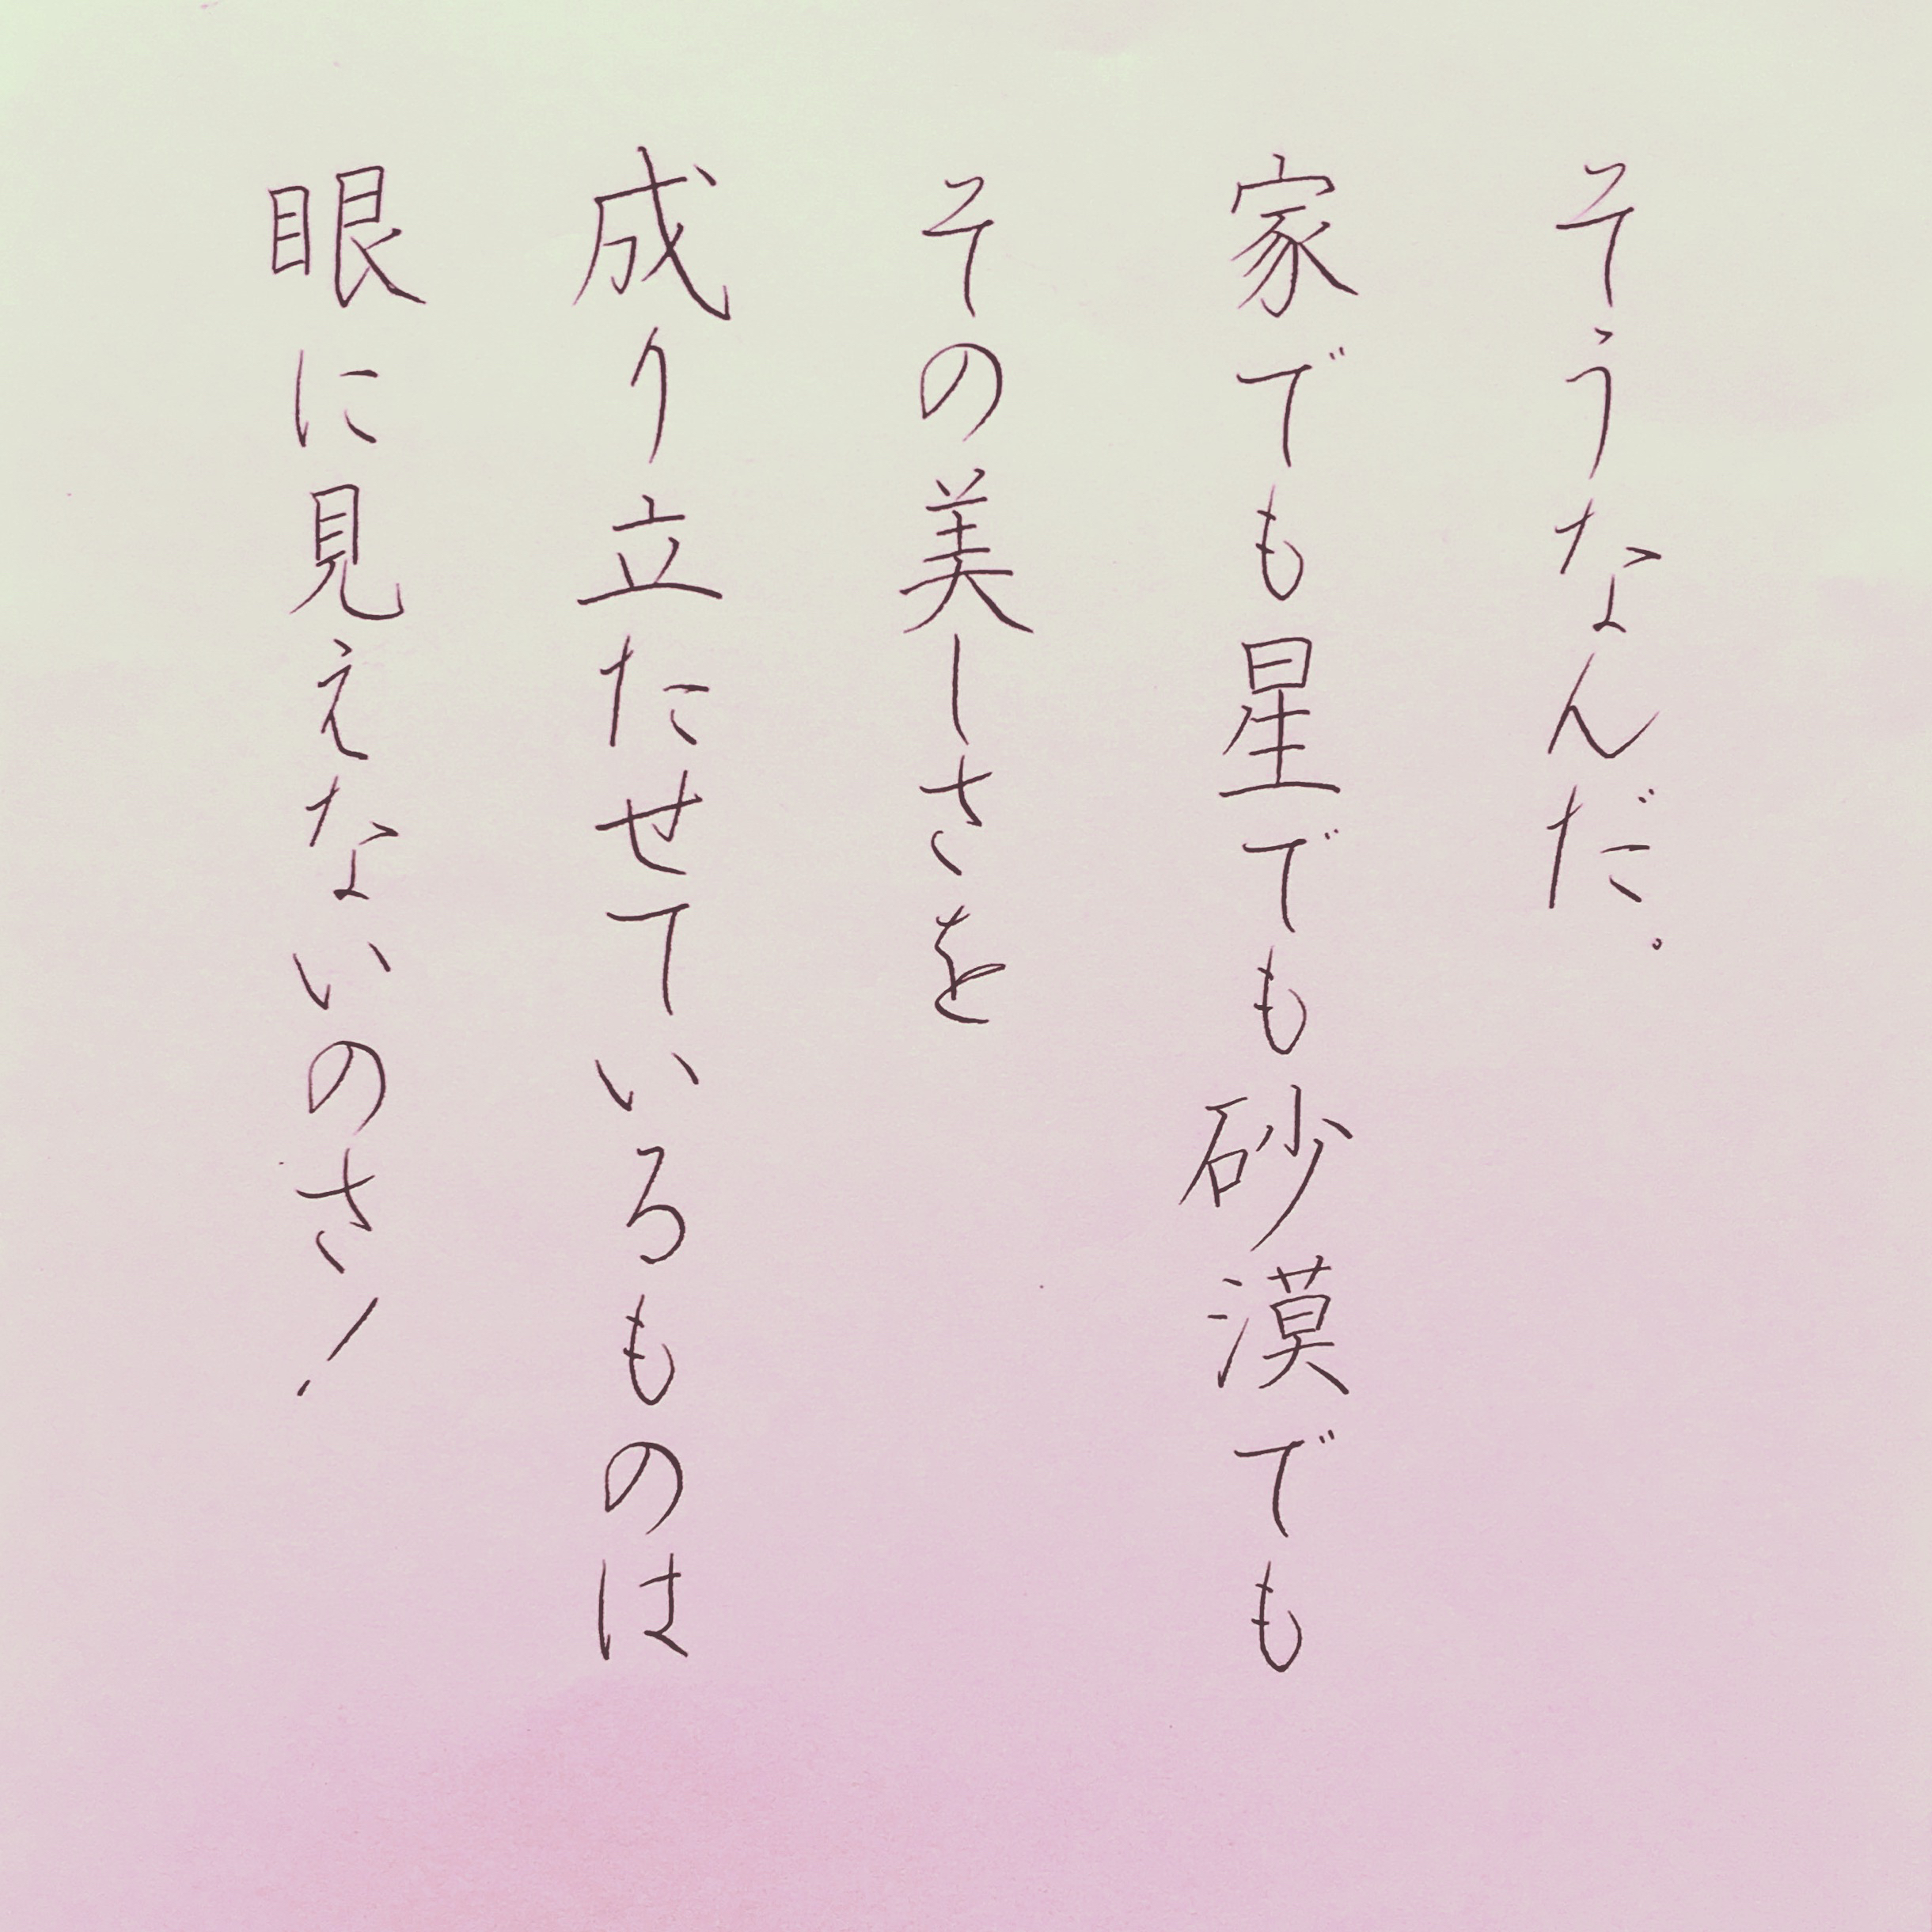 そうなんだ。
家でも星でも砂漠でも
その美しさを
成り立たせているものは
眼に見えないのさ!